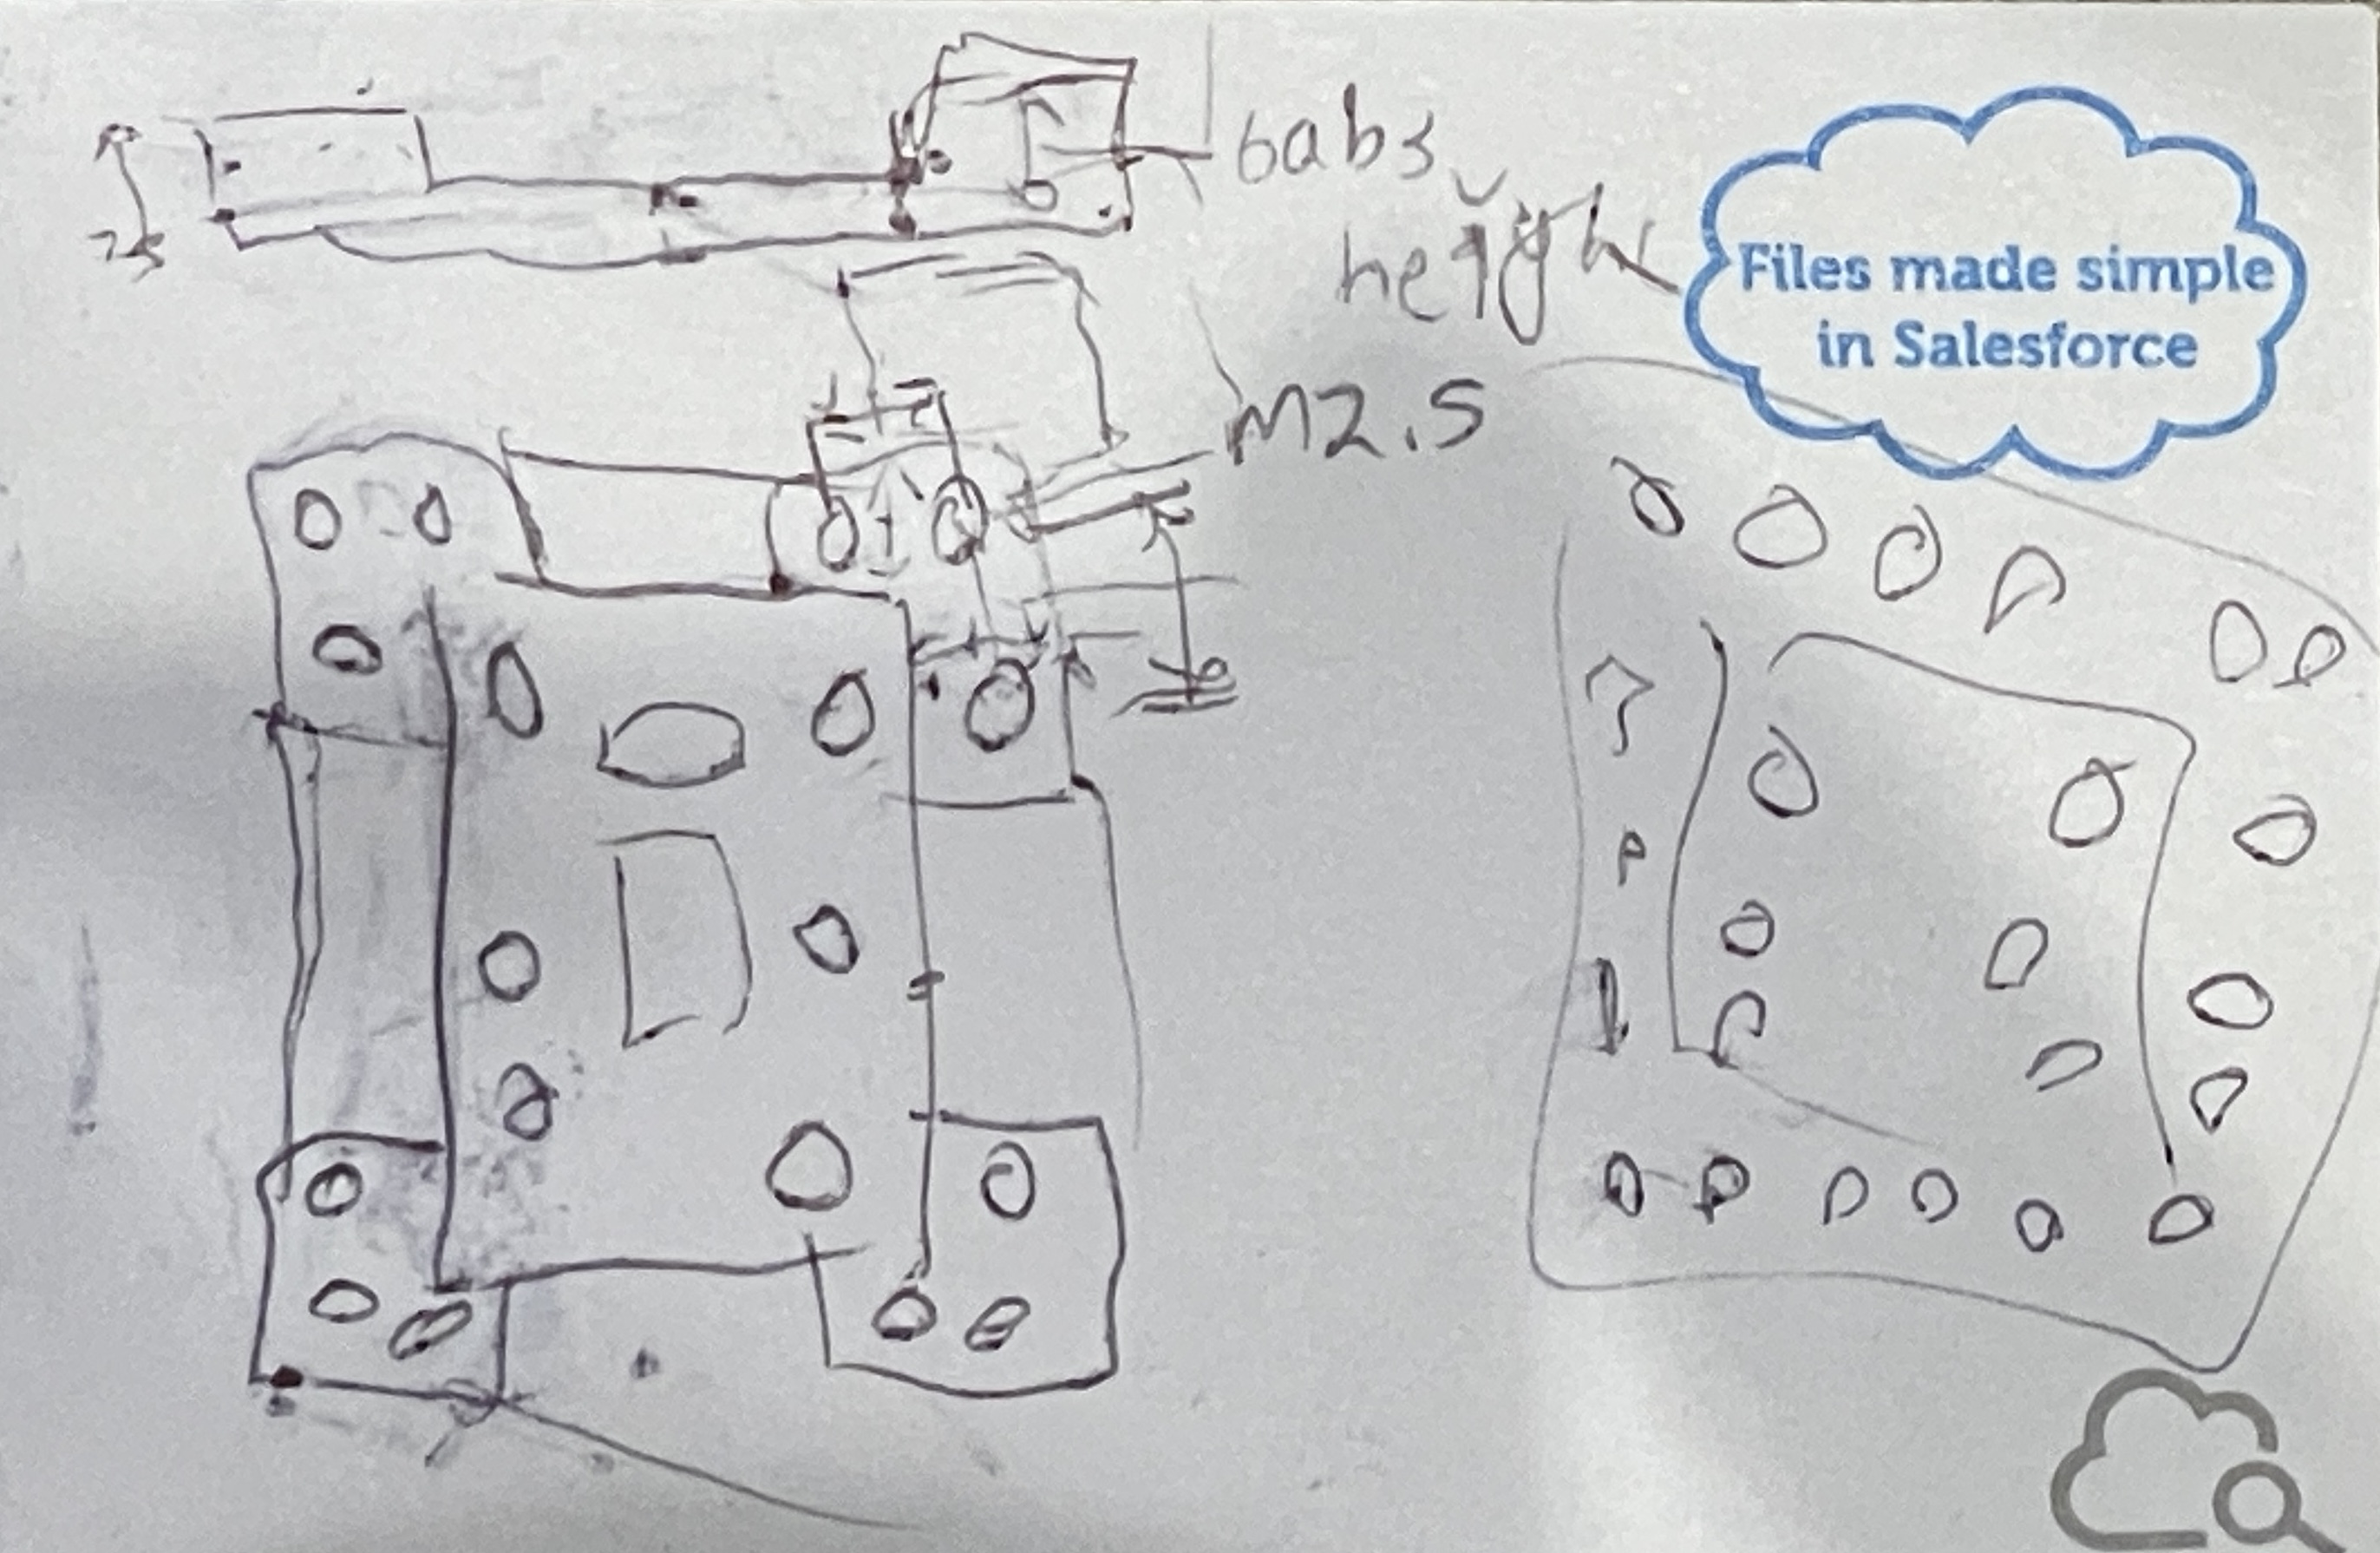 6abs
height
M2.5
Files made simple
in Salesforce